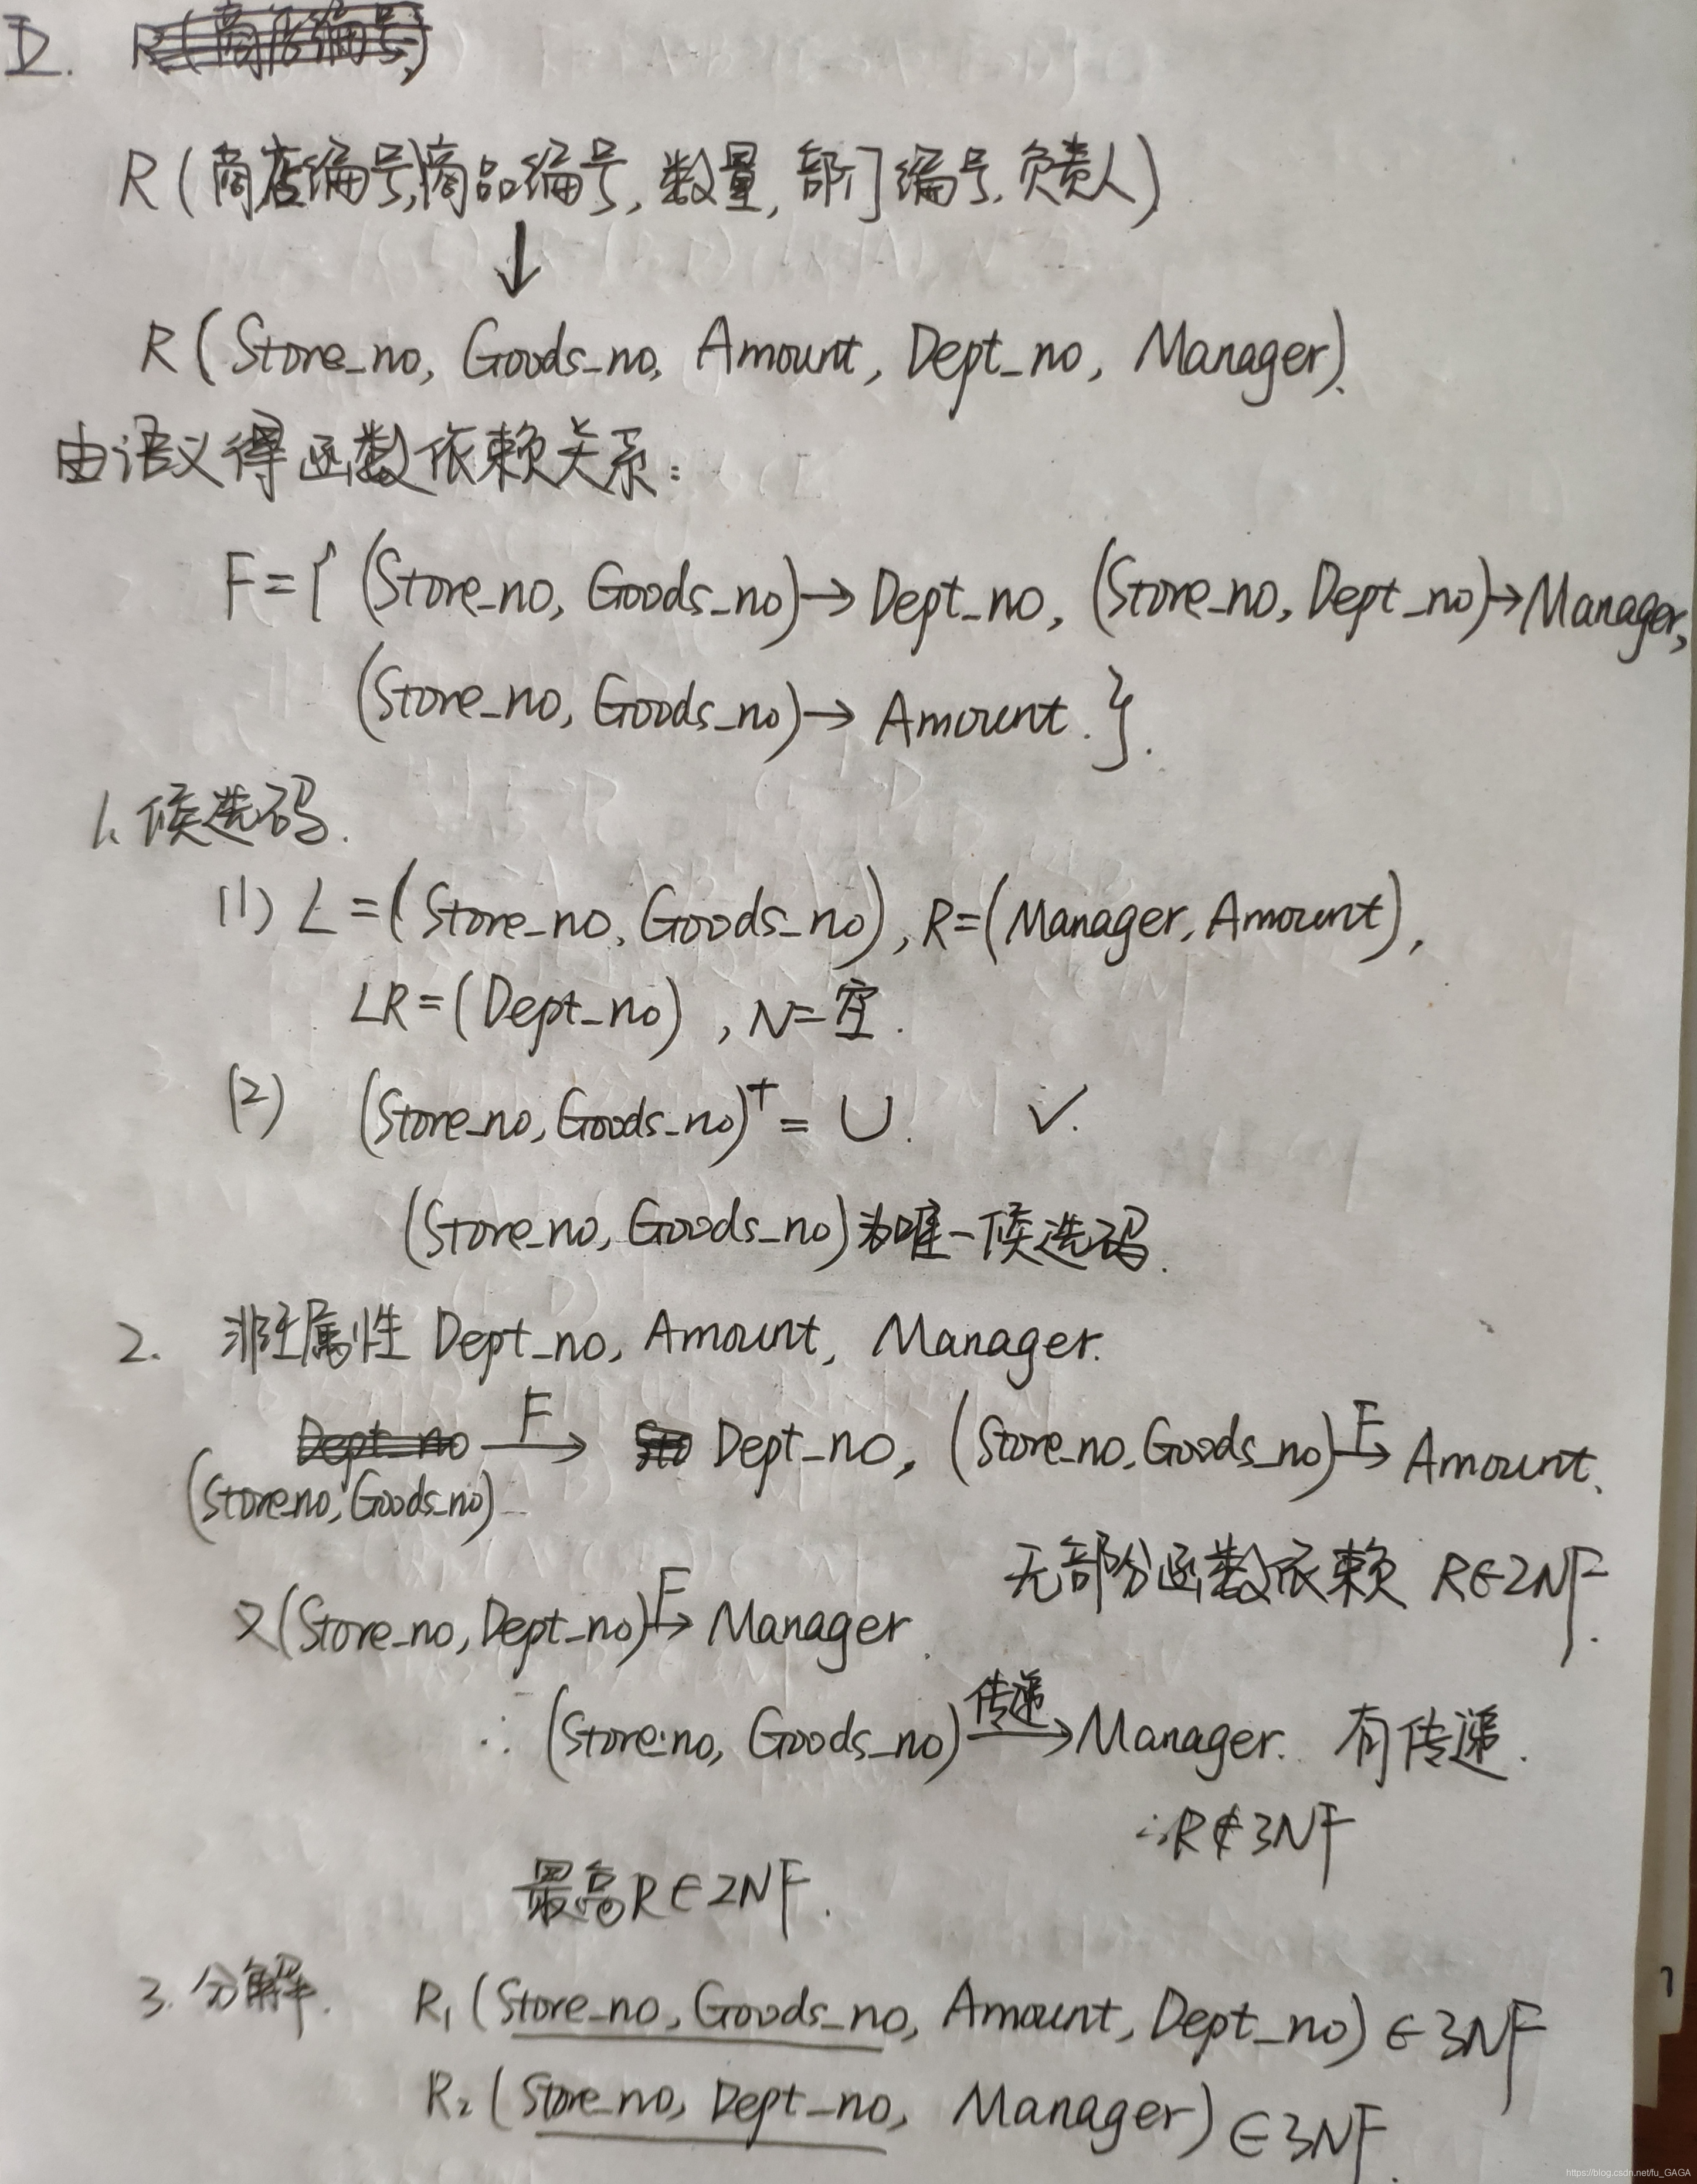 D. R(商店编号)
R(商店编号,商品编号,数量,部门编号,负责人)
↓
R(Store_no, Goods_no, Amount, Dept_no, Manager).
由语义得函数依赖关系:
F={(Store_no, Goods_no)→Dept_no, (Store_no, Dept_no)→Manager,
(Store_no, Goods_no)→Amount.}.
1.候选码.
(1) L=(Store_no, Goods_no), R=(Manager, Amount),
LR=(Dept_no), N=空.
(2) (Store_no, Goods_no)⁺=U. ✓.
(Store_no, Goods_no)为唯一候选码.
2. 非主属性 Dept_no, Amount, Manager.
Dept_no F→ Sto Dept_no, (Store_no, Goods_no) F→ Amount.
(Store_no, Goods_no)
无部分函数依赖 R∈2NF.
又(Store_no, Dept_no) F→ Manager.
∴ (Store_no, Goods_no) 传递→ Manager. 有传递.
∴R∉3NF
最高R∈2NF.
3.分解. R₁(Store_no, Goods_no, Amount, Dept_no)∈3NF
R₂(Store_no, Dept_no, Manager)∈3NF.
https://blog.csdn.net/fu_GAGA